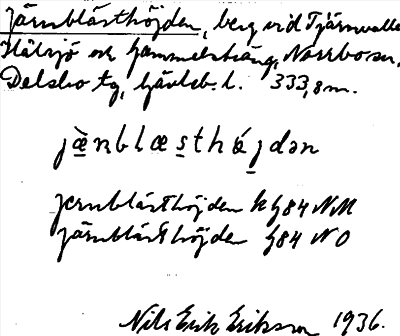 Järnblästhöjden, berg vid Tjärnvalle
Hälsjö och Gammelsträng, Norrbo sn,
Delsbo tg, Gävleb. l. 333,8 m.
jæ̀nblæsthǿjdən
Jernblästhöjden k G84 NM
Järnblästhöjden G84 NO
Nils Erik Eriksson 1936.